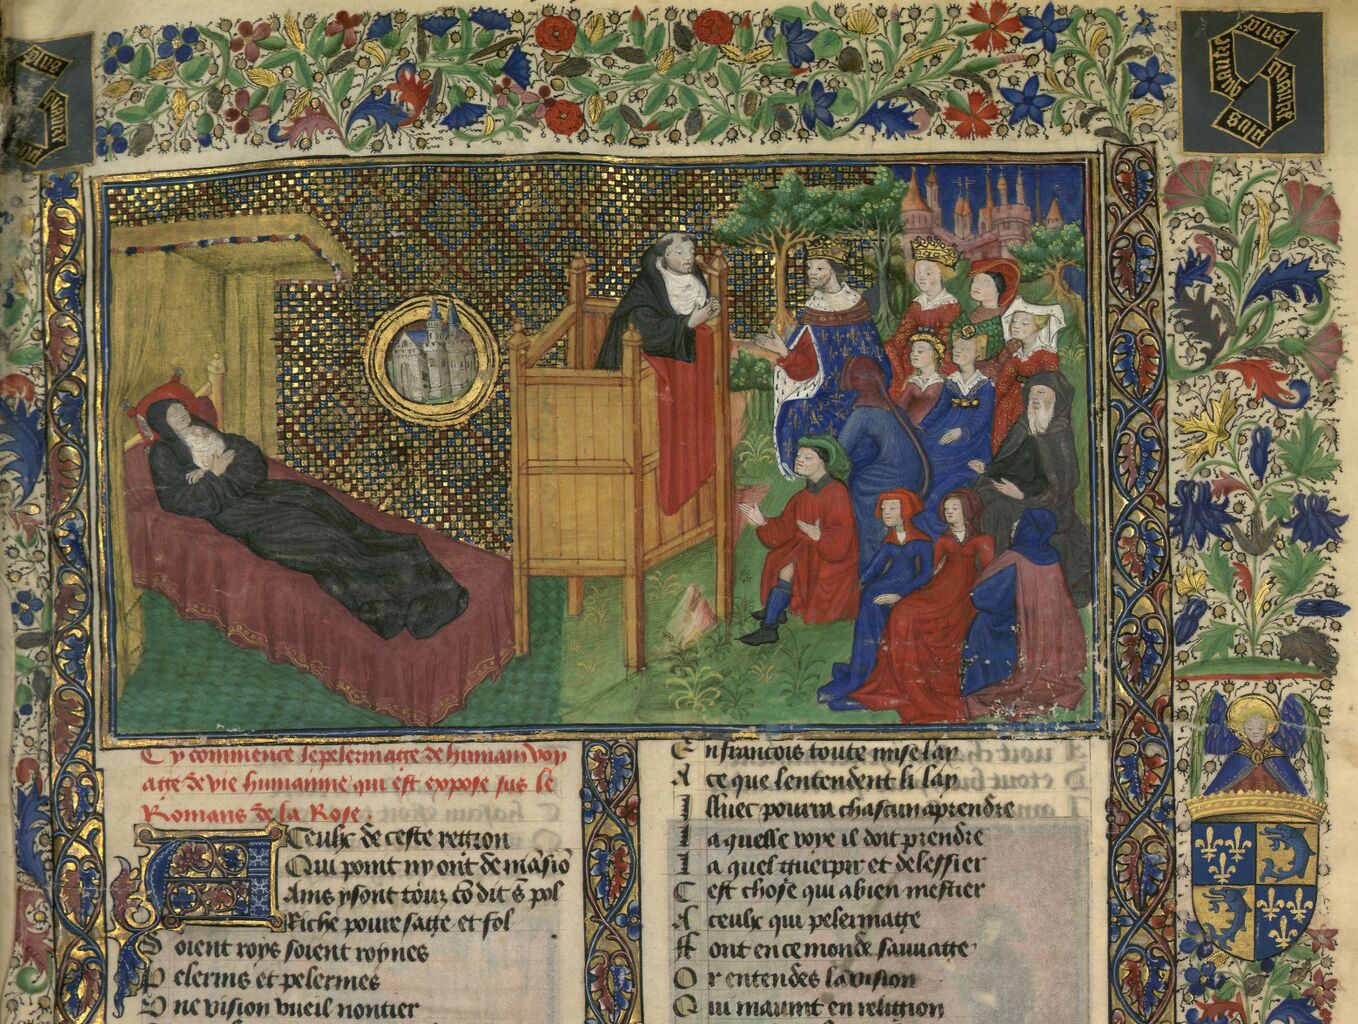 plus
quaire
plus
plus
quaire
plus
Cy commence le pelermage de humain voy
age de vie humainne qui est expose sus le
Romans de la Rose
A Ceulx de ceste region
Qui point ny ont de masio
Ains y sont touz co dit s pol
Riche poure sage et fol
Soient roys soient roynes
Pelerins et pelermes
Une vision vueil nontier
En francois toute mise lay
A ce que lentendent li lay
Illuec pourra chascun aprendre
La quelle voye il doit prendre
La quel guerpir et delessier
Cest chose qui a bien mestier
A ceulx qui pelermage
Font en ce monde sauvage
Or entendes la vision
Qui mavint en religion